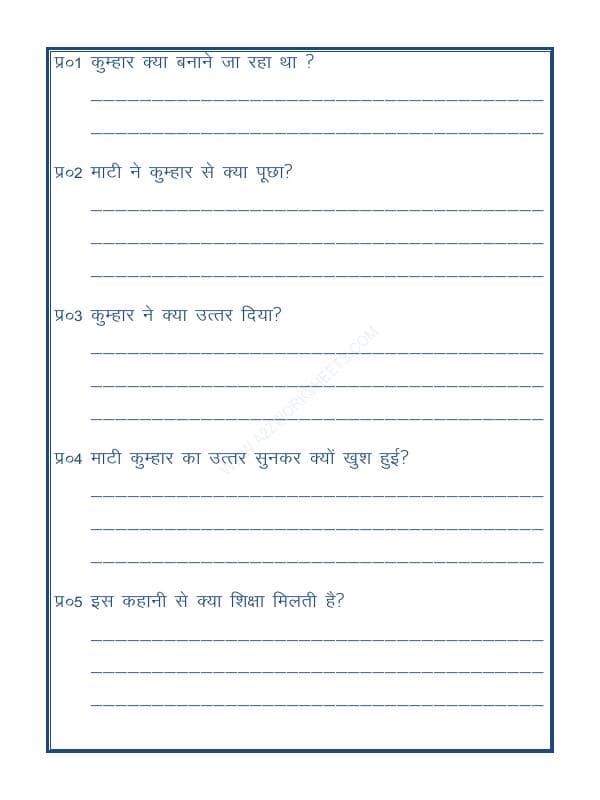 प्र०1 कुम्हार क्या बनाने जा रहा था ?
प्र०2 माटी ने कुम्हार से क्या पूछा?
प्र०3 कुम्हार ने क्या उत्तर दिया?
WWW.A2ZWORKSHEETS.COM
प्र०4 माटी कुम्हार का उत्तर सुनकर क्यों खुश हुई?
प्र०5 इस कहानी से क्या शिक्षा मिलती है?